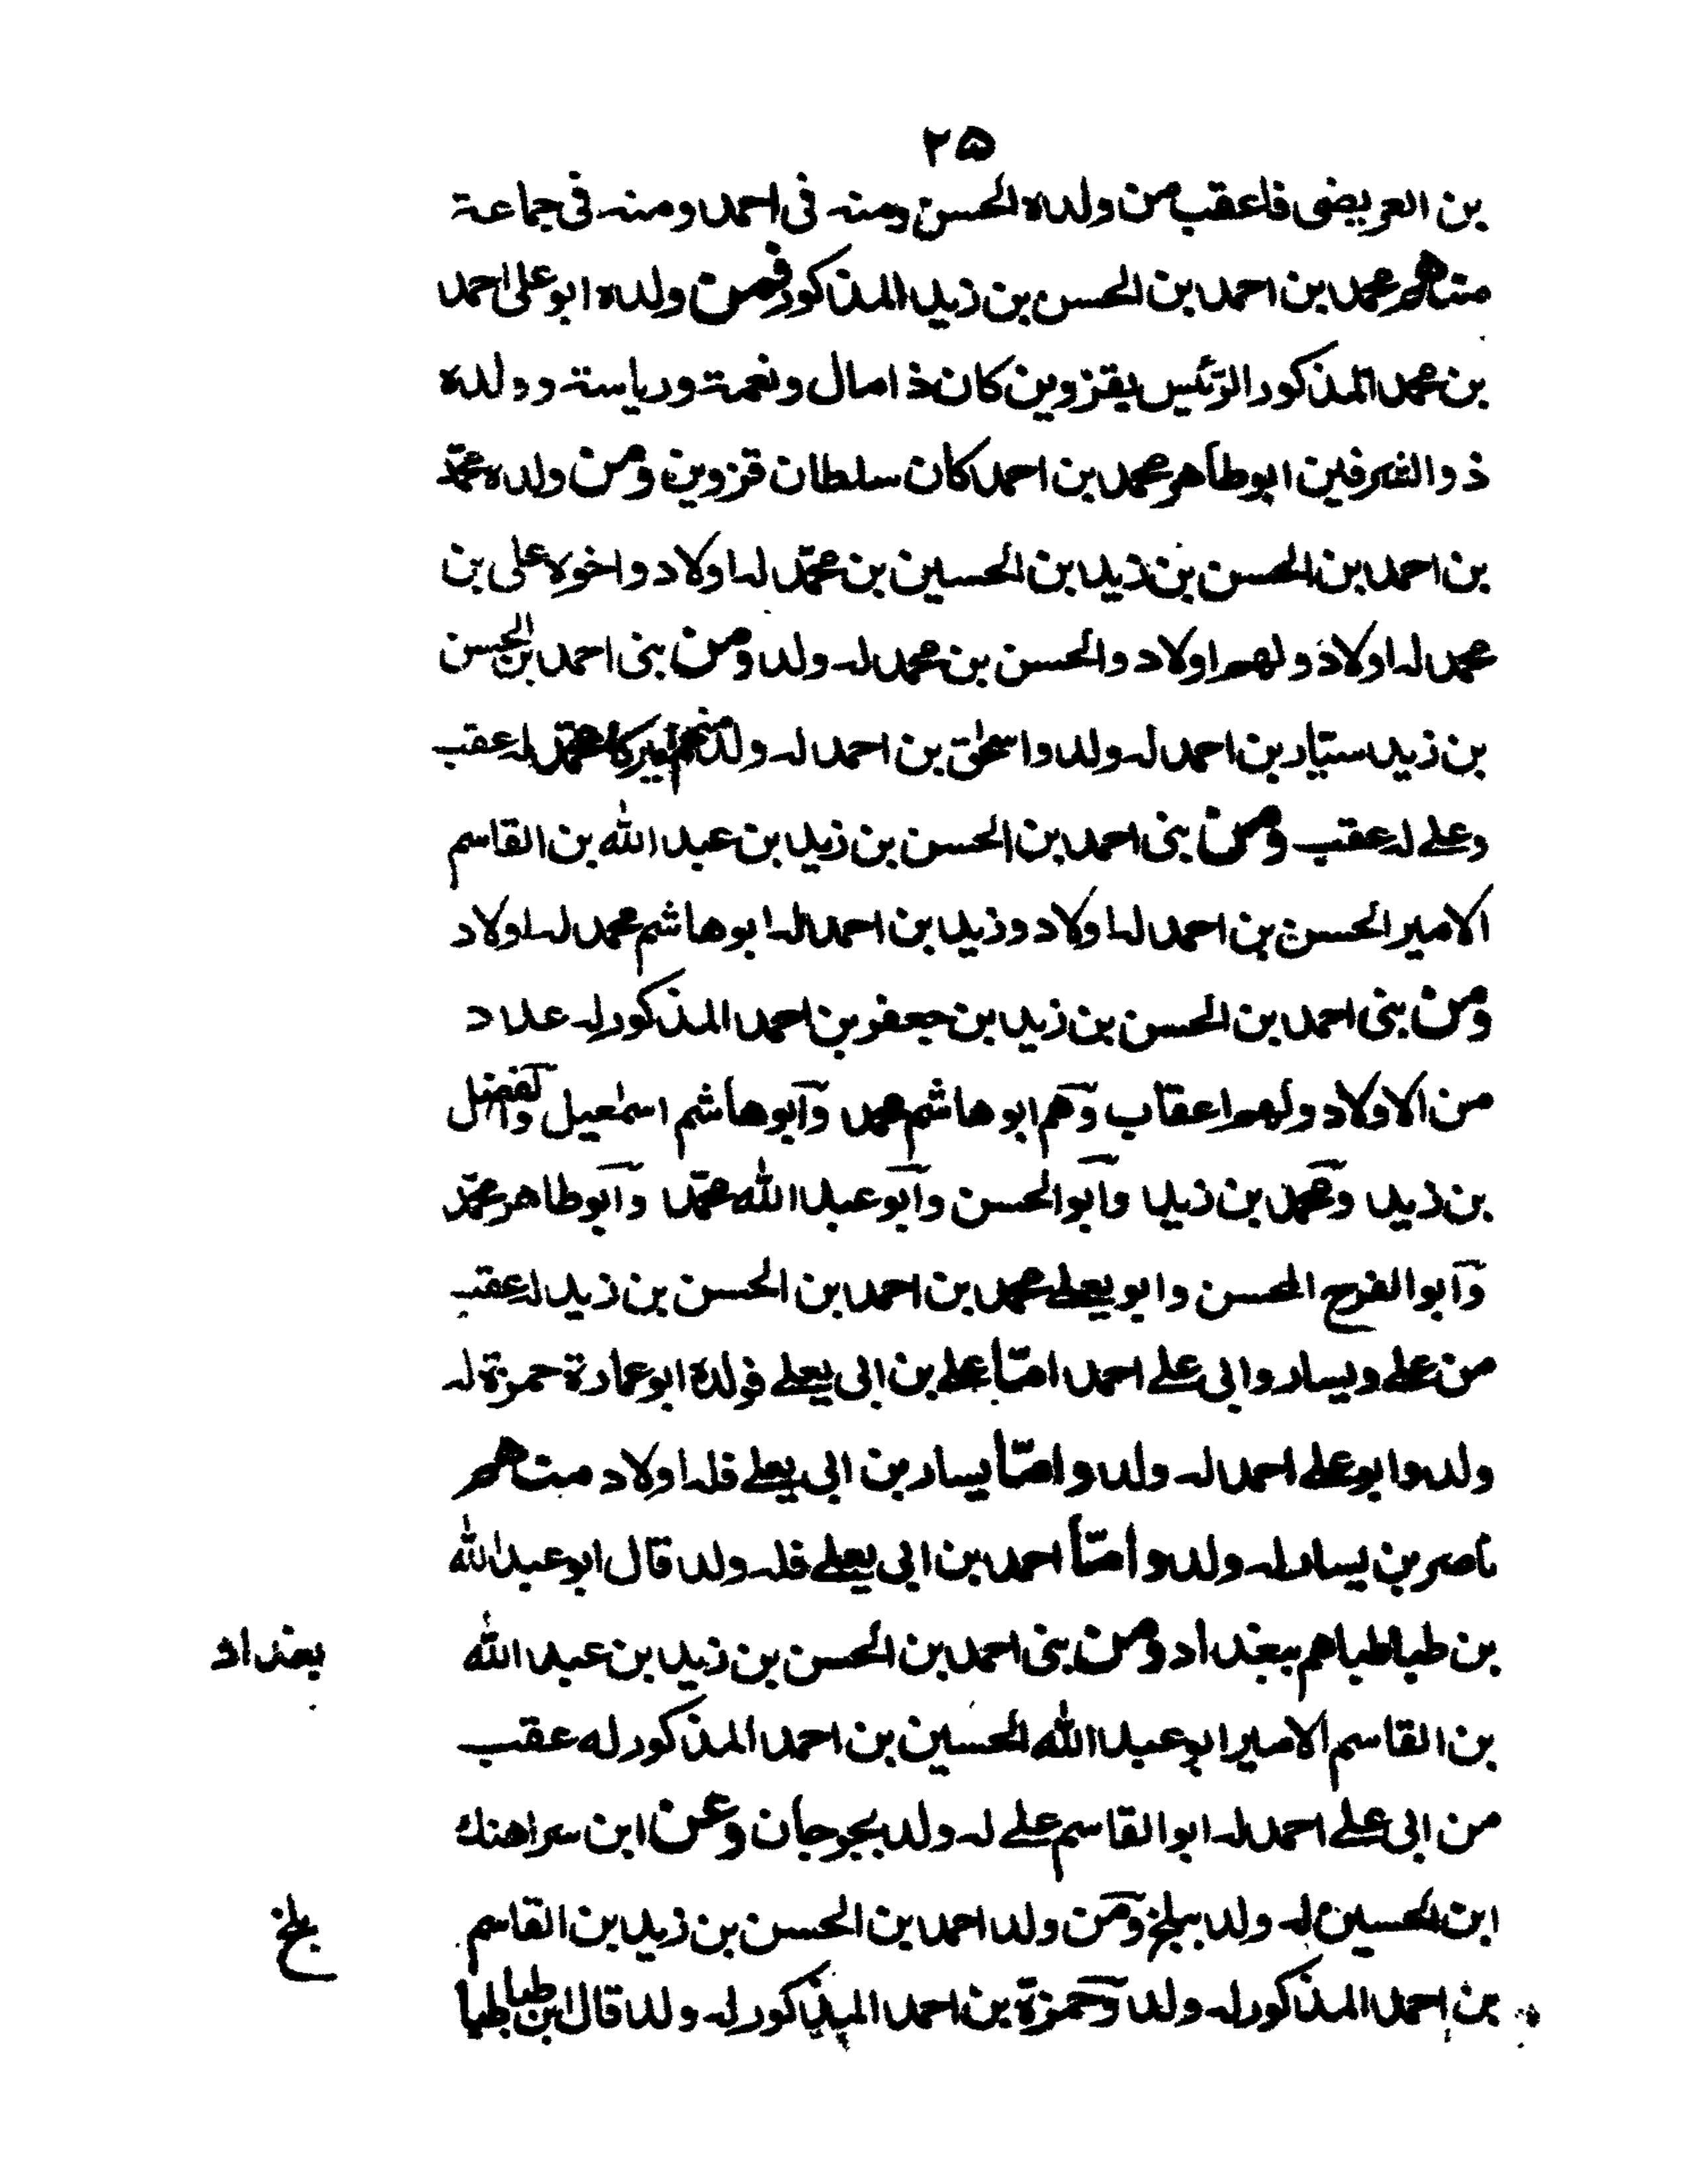 ۲۵
بن العريضى فاعقب من ولده الحسن ومنه فى احمد ومنه فى جماعة
منهم محمد بن احمد بن الحسن بن زيد المذكور فمن ولده ابو على احمد
بن محمد المذكور الرئيس بقزوين كان ذا مال ونعمة ورياسة وولده
ذو الشرفين ابو طاهر محمد بن احمد كان سلطان قزوين ومن ولده محمّد
بن احمد بن الحسن بن زيد بن الحسين بن محمّد له اولاد واخوه على بن
محمد له اولاد ولهم اولاد والحسن بن محمد له ولد ومن بنى احمد بن الحسن
بن زيد ستيار بن احمد له ولد واسحٰق بن احمد له ولد منهم اميركا محمّد له عقب
وعلے له عقب ومن بنى احمد بن الحسن بن زيد بن عبد الله بن القاسم
الامير الحسن بن احمد له اولاد وزيد بن احمد له ابو هاشم محمد له اولاد
ومن بنى احمد بن الحسن بن زيد بن جعفر بن احمد المذكور له عداد
من الاولاد ولهم اعقاب وهم ابو هاشم محمد وابو هاشم اسمٰعيل والفضل
بن زيد ومحمّد بن زيد وابو الحسن وابو عبد الله محمّد وابو طاهر محمّد
وابو الفرج المحسن وابو يعلے محمد بن احمد بن الحسن بن زيد له عقب
من علے ويسار وابى علے احمد امّا علے بن ابى يعلے فولده ابو عمارة حمزة له
ولد وابو علے احمد له ولد وامّا يسار بن ابى يعلے فله اولاد منهم
ناصر بن يسار له ولد وامّا احمد بن ابى يعلے فله ولد قال ابو عبد الله
بن طباطبا هم ببغداد ومن بنى احمد بن الحسن بن زيد بن عبد الله
بغداد
بن القاسم الامير ابو عبد الله الحسين بن احمد المذكور له عقب
من ابى علے احمد له ابو القاسم علے له ولد بجرجان وعن ابن سراهنك
ابن الحسين له ولد ببلخ ومن ولد احمد بن الحسن بن زيد بن القاسم
بلخ
بن احمد المذكور له ولد وحمزة بن احمد المذكور له ولد قال ابن طباطبا